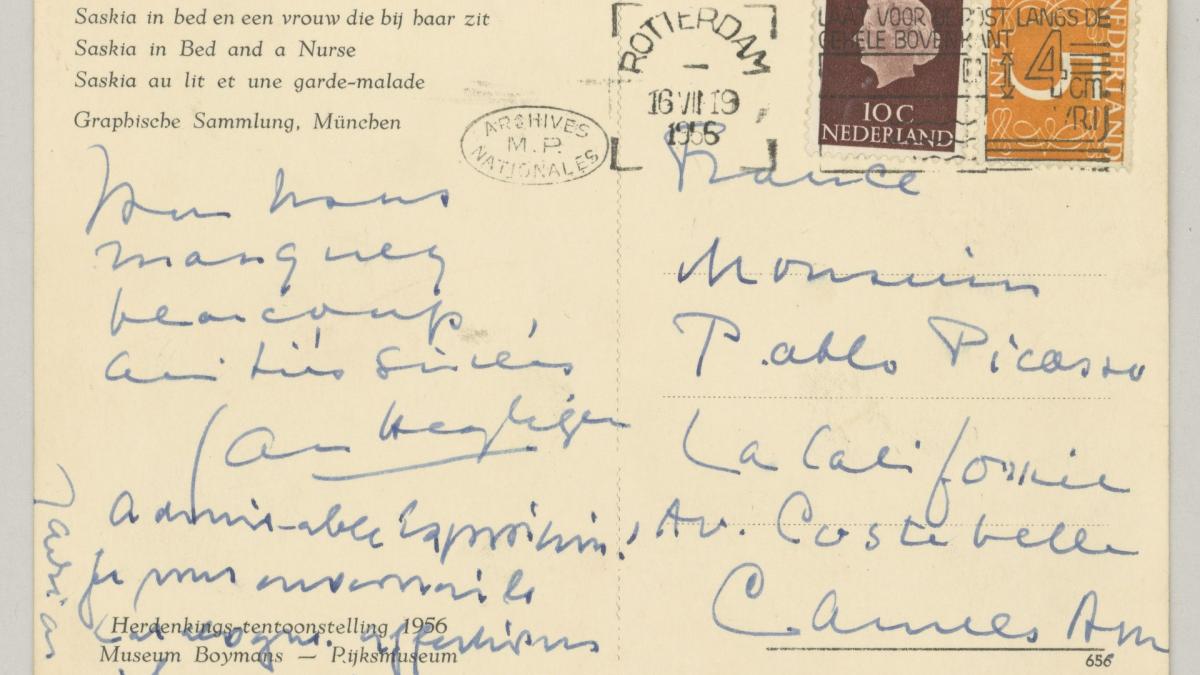 Saskia in bed en een vrouw die bij haar zit
Saskia in Bed and a Nurse
Saskia au lit et une garde-malade
Graphische Sammlung, München
ARCHIVES
M.P.
NATIONALES
ROTTERDAM
16 VII 19
1956
LAAT VOOR DE POST LANGS DE
GEHELE BOVENKANT
4 cm.
VRIJ
10 C
NEDERLAND
5
NEDERLAND
Vous nous
manquez
beaucoup,
amitiés
Jan Heyligers
Admirable Exposition!
Je vous enverrai le
catalogue. affections
France
Monsieur
Pablo Picasso
La Californie
Av. Costebelle
Cannes AM
Herdenkings-tentoonstelling 1956
Museum Boymans — Rijksmuseum
656